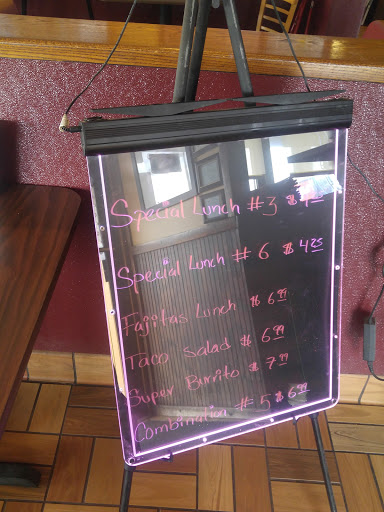 Special Lunch #3 $
Special Lunch # 6 $ 4.25
Fajitas Lunch $ 6.99
Taco Salad $ 6.99
Super Burrito $ 7.99
Combination # 5 $ 6.99